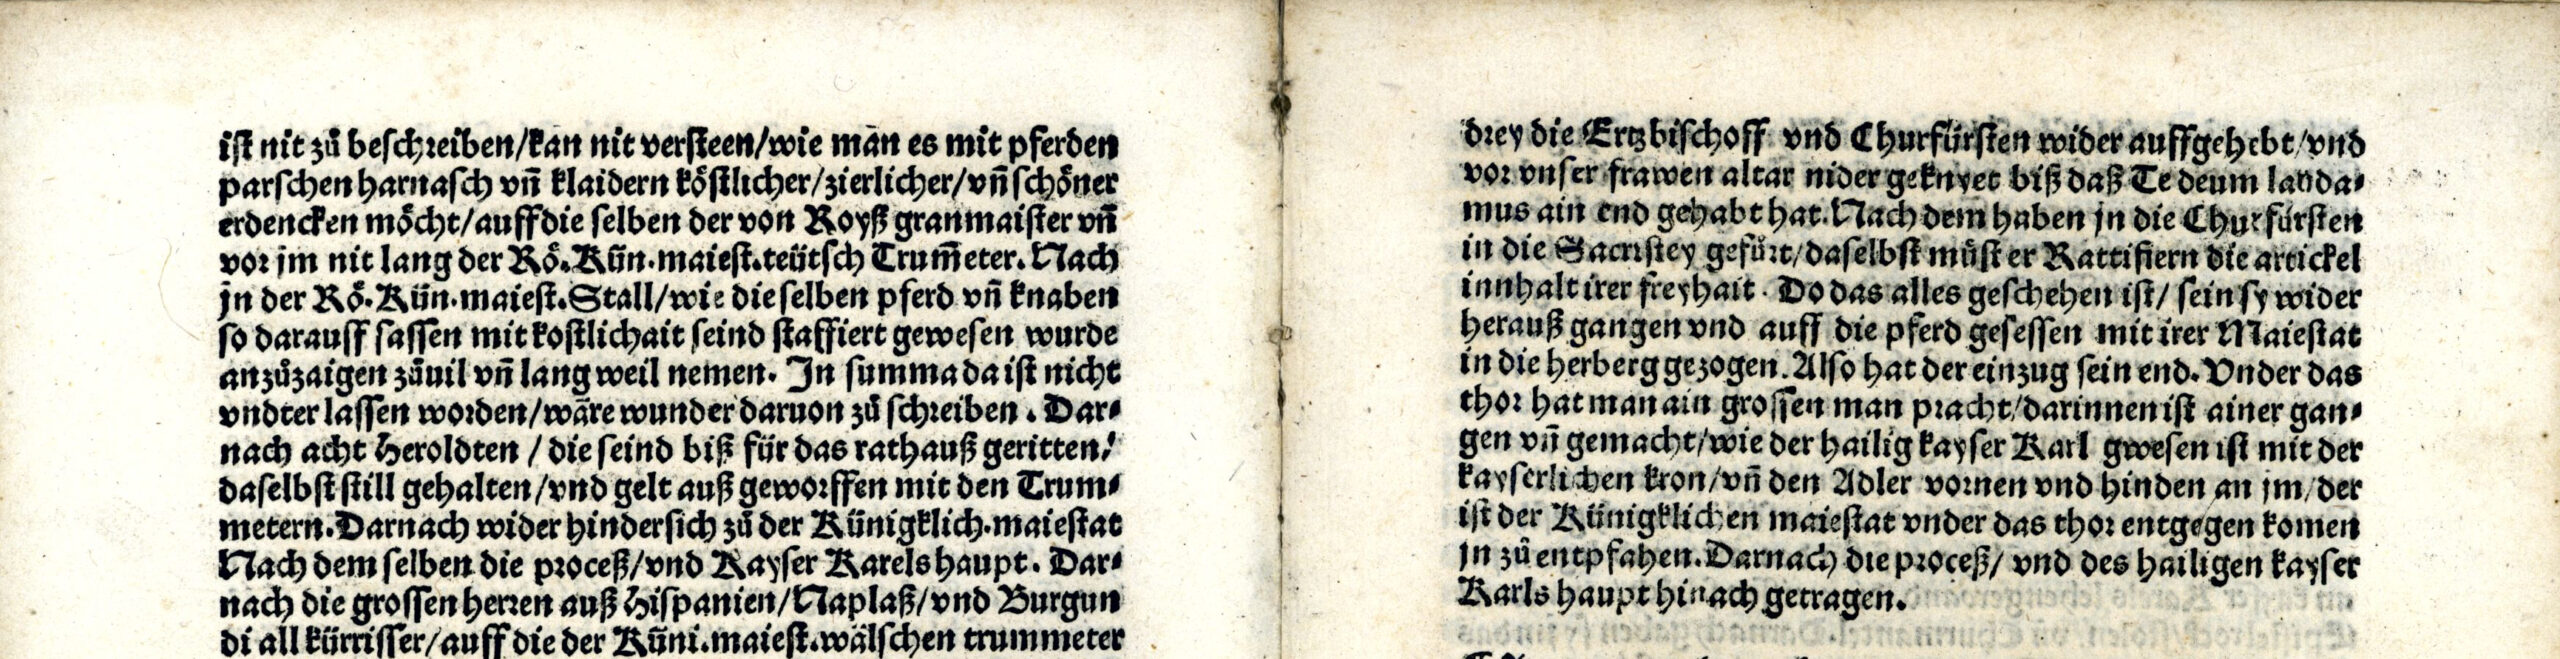 ist nit zů beschreiben/kan nit versteen/wie man es mit pferden
parschen harnasch vñ klaidern köstlicher/zierlicher/vñ schöner
erdencken möcht/auff die selben der von Royß granmaister vñ
vor jm nit lang der Rö. Kün. maiest. teütsch Trum̃eter. Nach
jn der Rö. Kün. maiest. Stall/wie die selben pferd vñ knaben
so darauff sassen mit kostlichait seind staffiert gewesen wurde
anzůzaigen zůuil vñ lang weil nemen. In summa da ist nicht
vndter lassen worden/wäre wunder daruon zů schreiben. Dar⸗
nach acht Heroldten / die seind biß für das rathauß geritten/
daselbst still gehalten/vnd gelt auß geworffen mit den Trum⸗
metern. Darnach wider hindersich zů der Künigklich. maiestat
Nach dem selben die proceß/vnd Kayser Karels haupt. Dar⸗
nach die grossen herren auß Hispanien/Naplaß/vnd Burgun
di all kürrisser/auff die der Küni. maiest. wälschen trummeter
drey die Ertzbischoff vnd Churfürsten wider auffgehebt/vnd
vor vnser frawen altar nider geknyet biß daß Te deum lauda⸗
mus ain end gehabt hat. Nach dem haben jn die Churfürsten
in die Sacristey gefůrt/daselbst můst er Rattifiern die artickel
innhalt irer freyhait. Do das alles geschehen ist/ sein sy wider
herauß gangen vnd auff die pferd gesessen mit irer Maiestat
in die herberg gezogen. Also hat der einzug sein end. Vnder das
thor hat man ain grossen man pracht/darinnen ist ainer gan⸗
gen vñ gemacht/wie der hailig kayser Karl gwesen ist mit der
kayserlichen kron/vñ den Adler vornen vnd hinden an jm/der
ist der Künigklichen maiestat vnder das thor entgegen komen
jn zů entpfahen. Darnach die proceß/ vnd des hailigen kayser
Karls haupt hinach getragen.